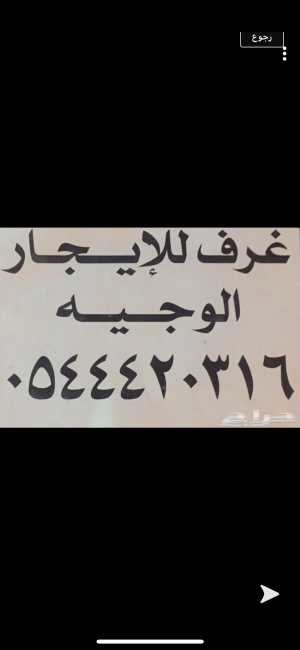 رجوع
غرف للإيجار
الوجيه
٠٥٤٤٤٢٠٣١٦
حراج